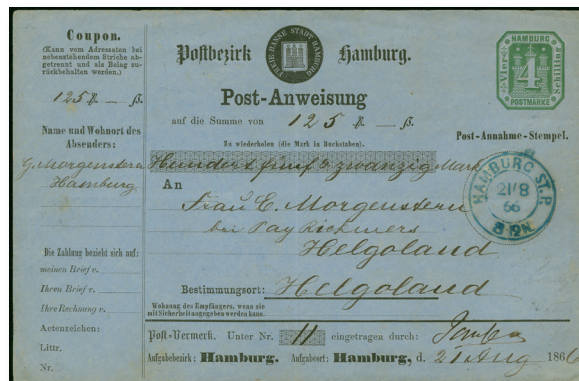 Coupon.
(Kann vom Adressaten bei
nebenstehendem Striche ab-
getrennt und als Beleg zu-
rückbehalten werden.)
125 ß.
Name und Wohnort des
Absenders:
G. Morgenstern
Hamburg
Die Zahlung bezieht sich auf:
meinen Brief v.
Ihren Brief v.
Ihre Rechnung v.
Actenzeichen:
Littr.
Nr.
Postbezirk Hamburg.
FREIE HANSE STADT HAMBURG
Post-Anweisung
auf die Summe von 125 ß.
Zu wiederholen (die Mark in Buchstaben).
Hundert fünf & zwanzig Mark
An
Frau C. Morgenstern
bei Pay
Helgoland
Bestimmungsort: Helgoland
Wohnung des Empfängers, wenn sie
mit Sicherheit angegeben werden kann.
Post-Vermerk. Unter Nr. 11 eingetragen durch:
Aufgabebezirk: Hamburg. Aufgabeort: Hamburg, d. 21 Aug 1866
HAMBURG
Vier
4
Schilling
POSTMARKE
Post-Annahme-Stempel.
HAMBURG ST.P.
21/8
66